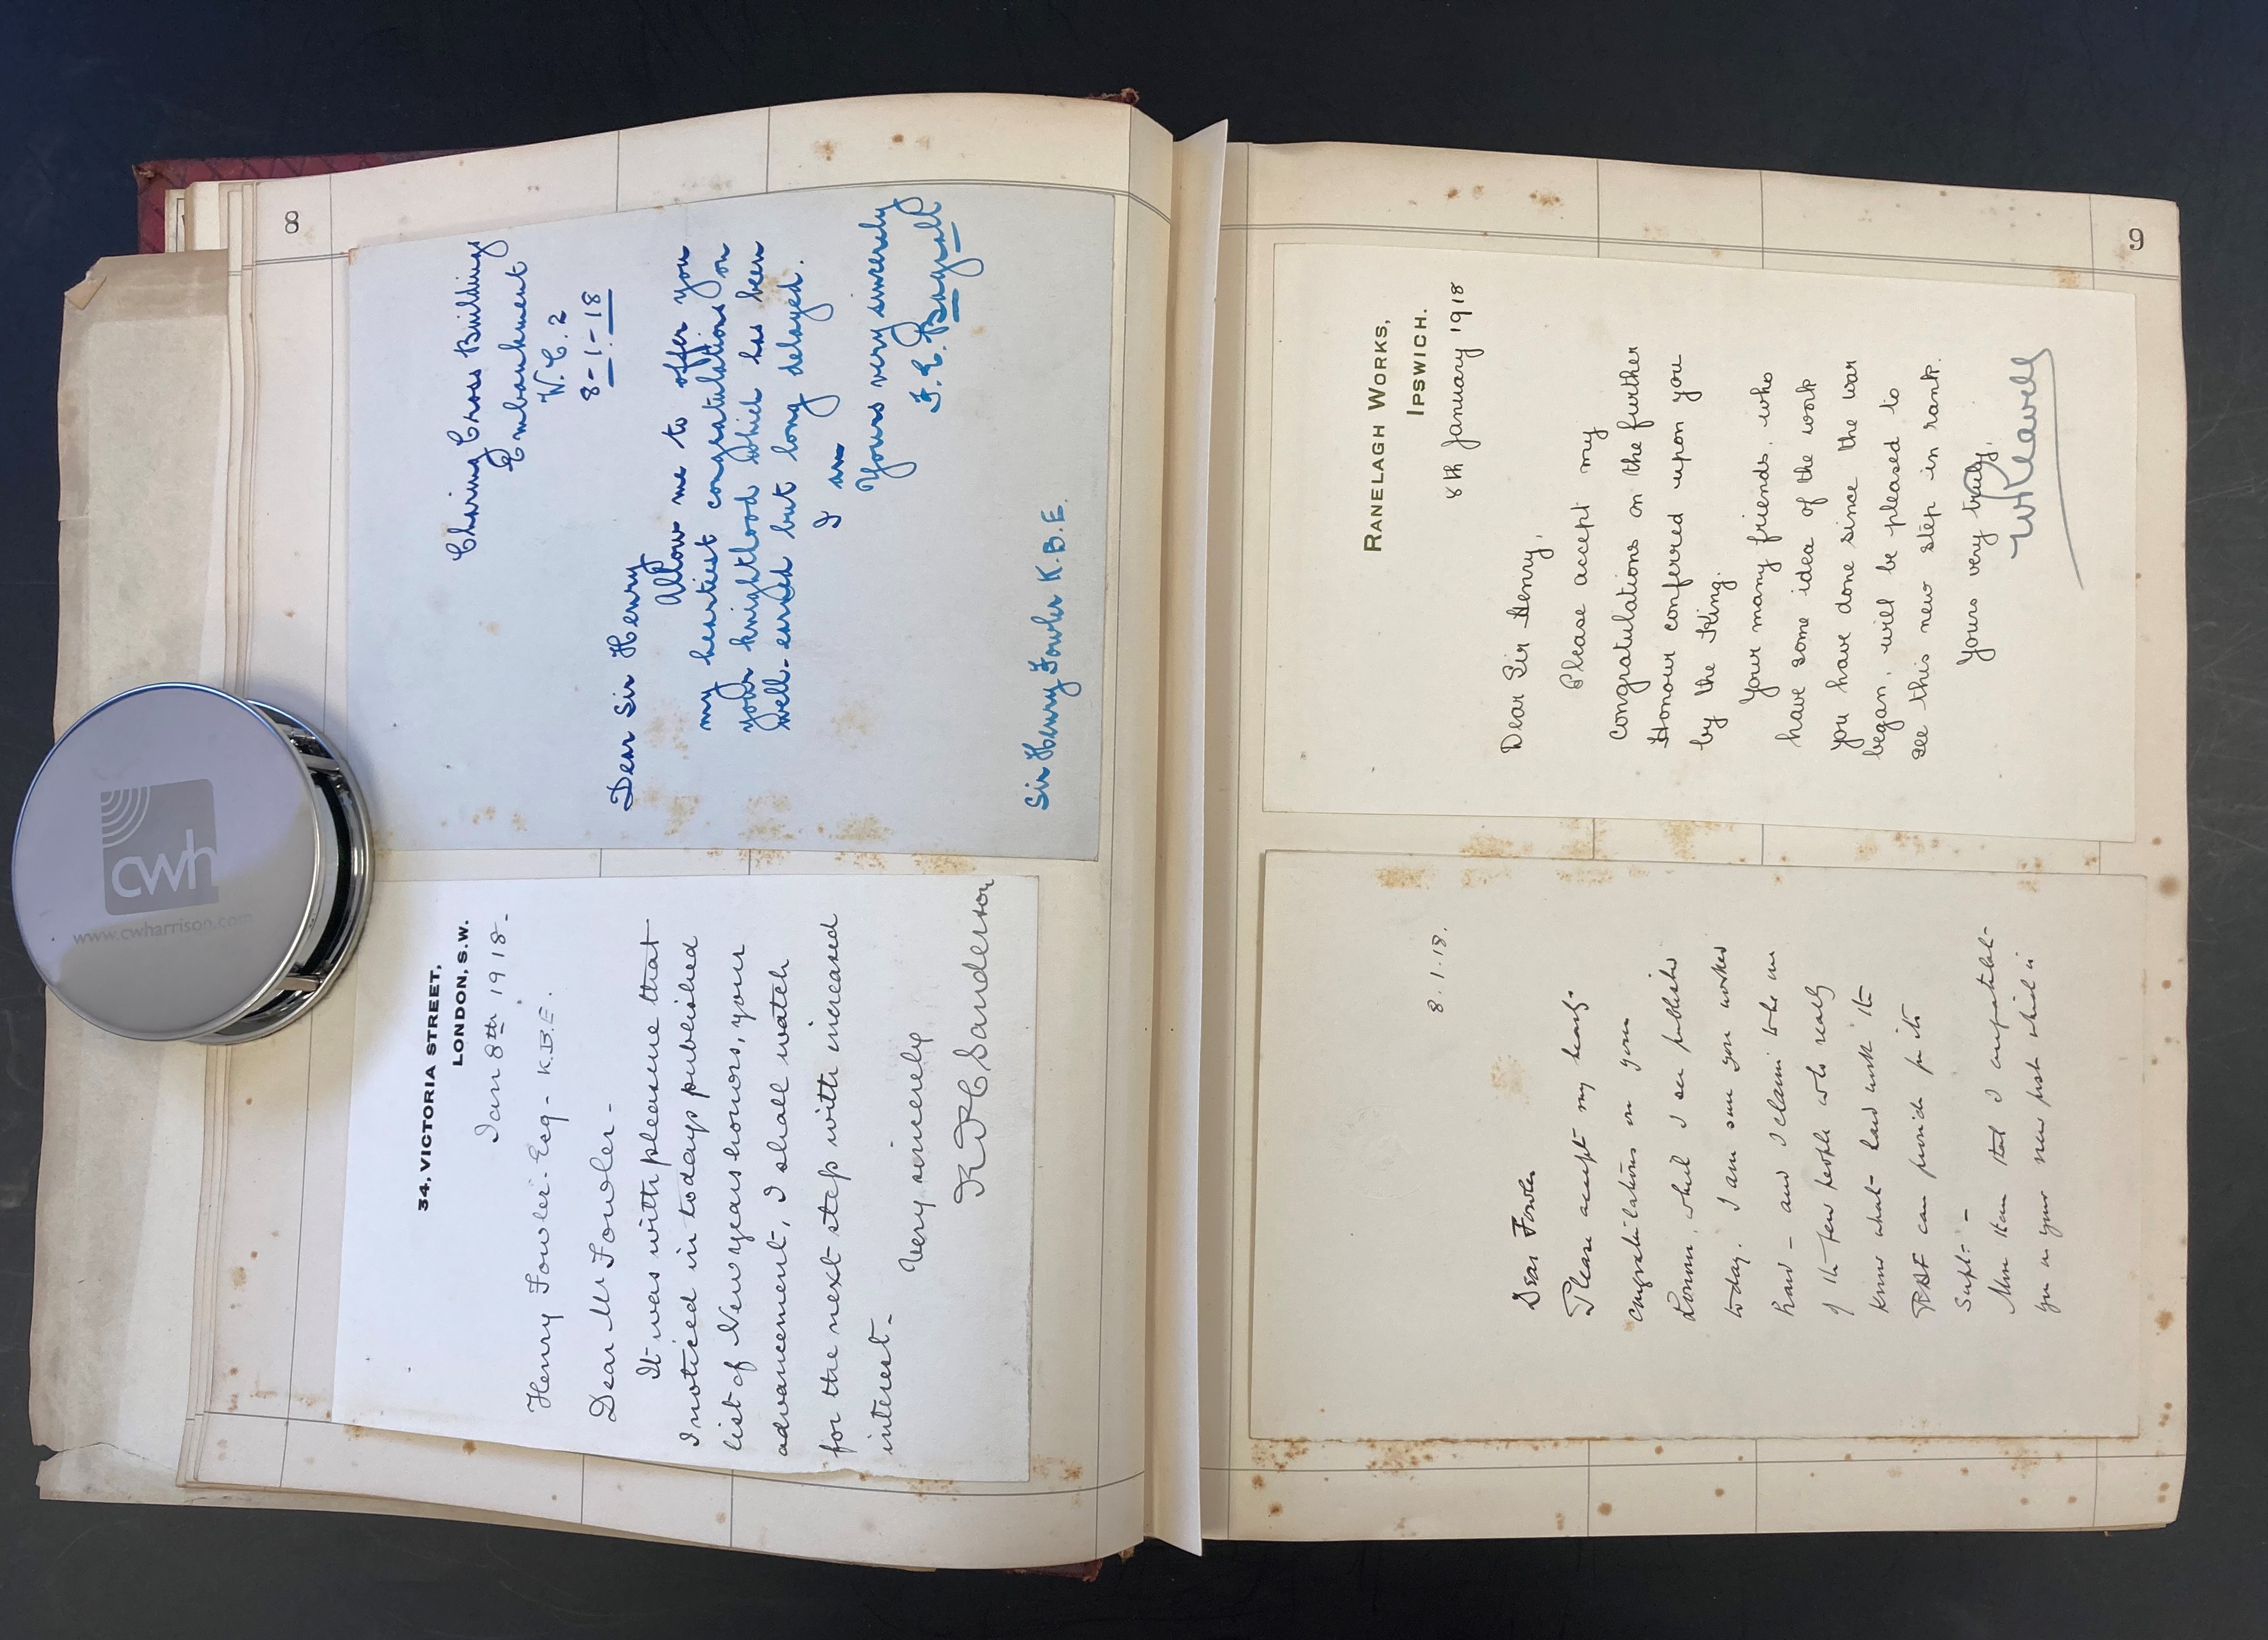 8
34, VICTORIA STREET,
LONDON, S.W.
Jan 8th 1918-
Henry Fowler. Esq- K.B.E.
Dear Mr Fowler-
It was with pleasure that
I noticed in todays published
list of New years honours, your
advancement, I shall watch
for the next step with increased
interest-
Very sincerely
Sanderson
Charing Cross Buildings
Embankment
W.C. 2
8-1-18
Dear Sir Henry
Allow me to offer you
my heartiest congratulations on
your knighthood which has been
well-earned but long delayed.
I am
Yours very sincerely
F. E. Bagnall
Sir Henry Fowler K.B.E.
9
8.1.18.
Dear Fowler
Please accept my hearty
congratulations on your
honour, which I see published
today. I am sure you worked
hard – and I claim to be one
of the few people who really
know what hard work the
can provide for its
Supt: –
More than that I congratulate
you on your new post which is
RANELAGH WORKS,
IPSWICH.
8th January 1918
Dear Sir Henry,
Please accept my
congratulations on the further
Honour conferred upon you
by the King.
Your many friends, who
have some idea of the work
you have done since the war
began, will be pleased to
see this new step in rank.
Yours very truly,
cwh
www.cwharrison.com